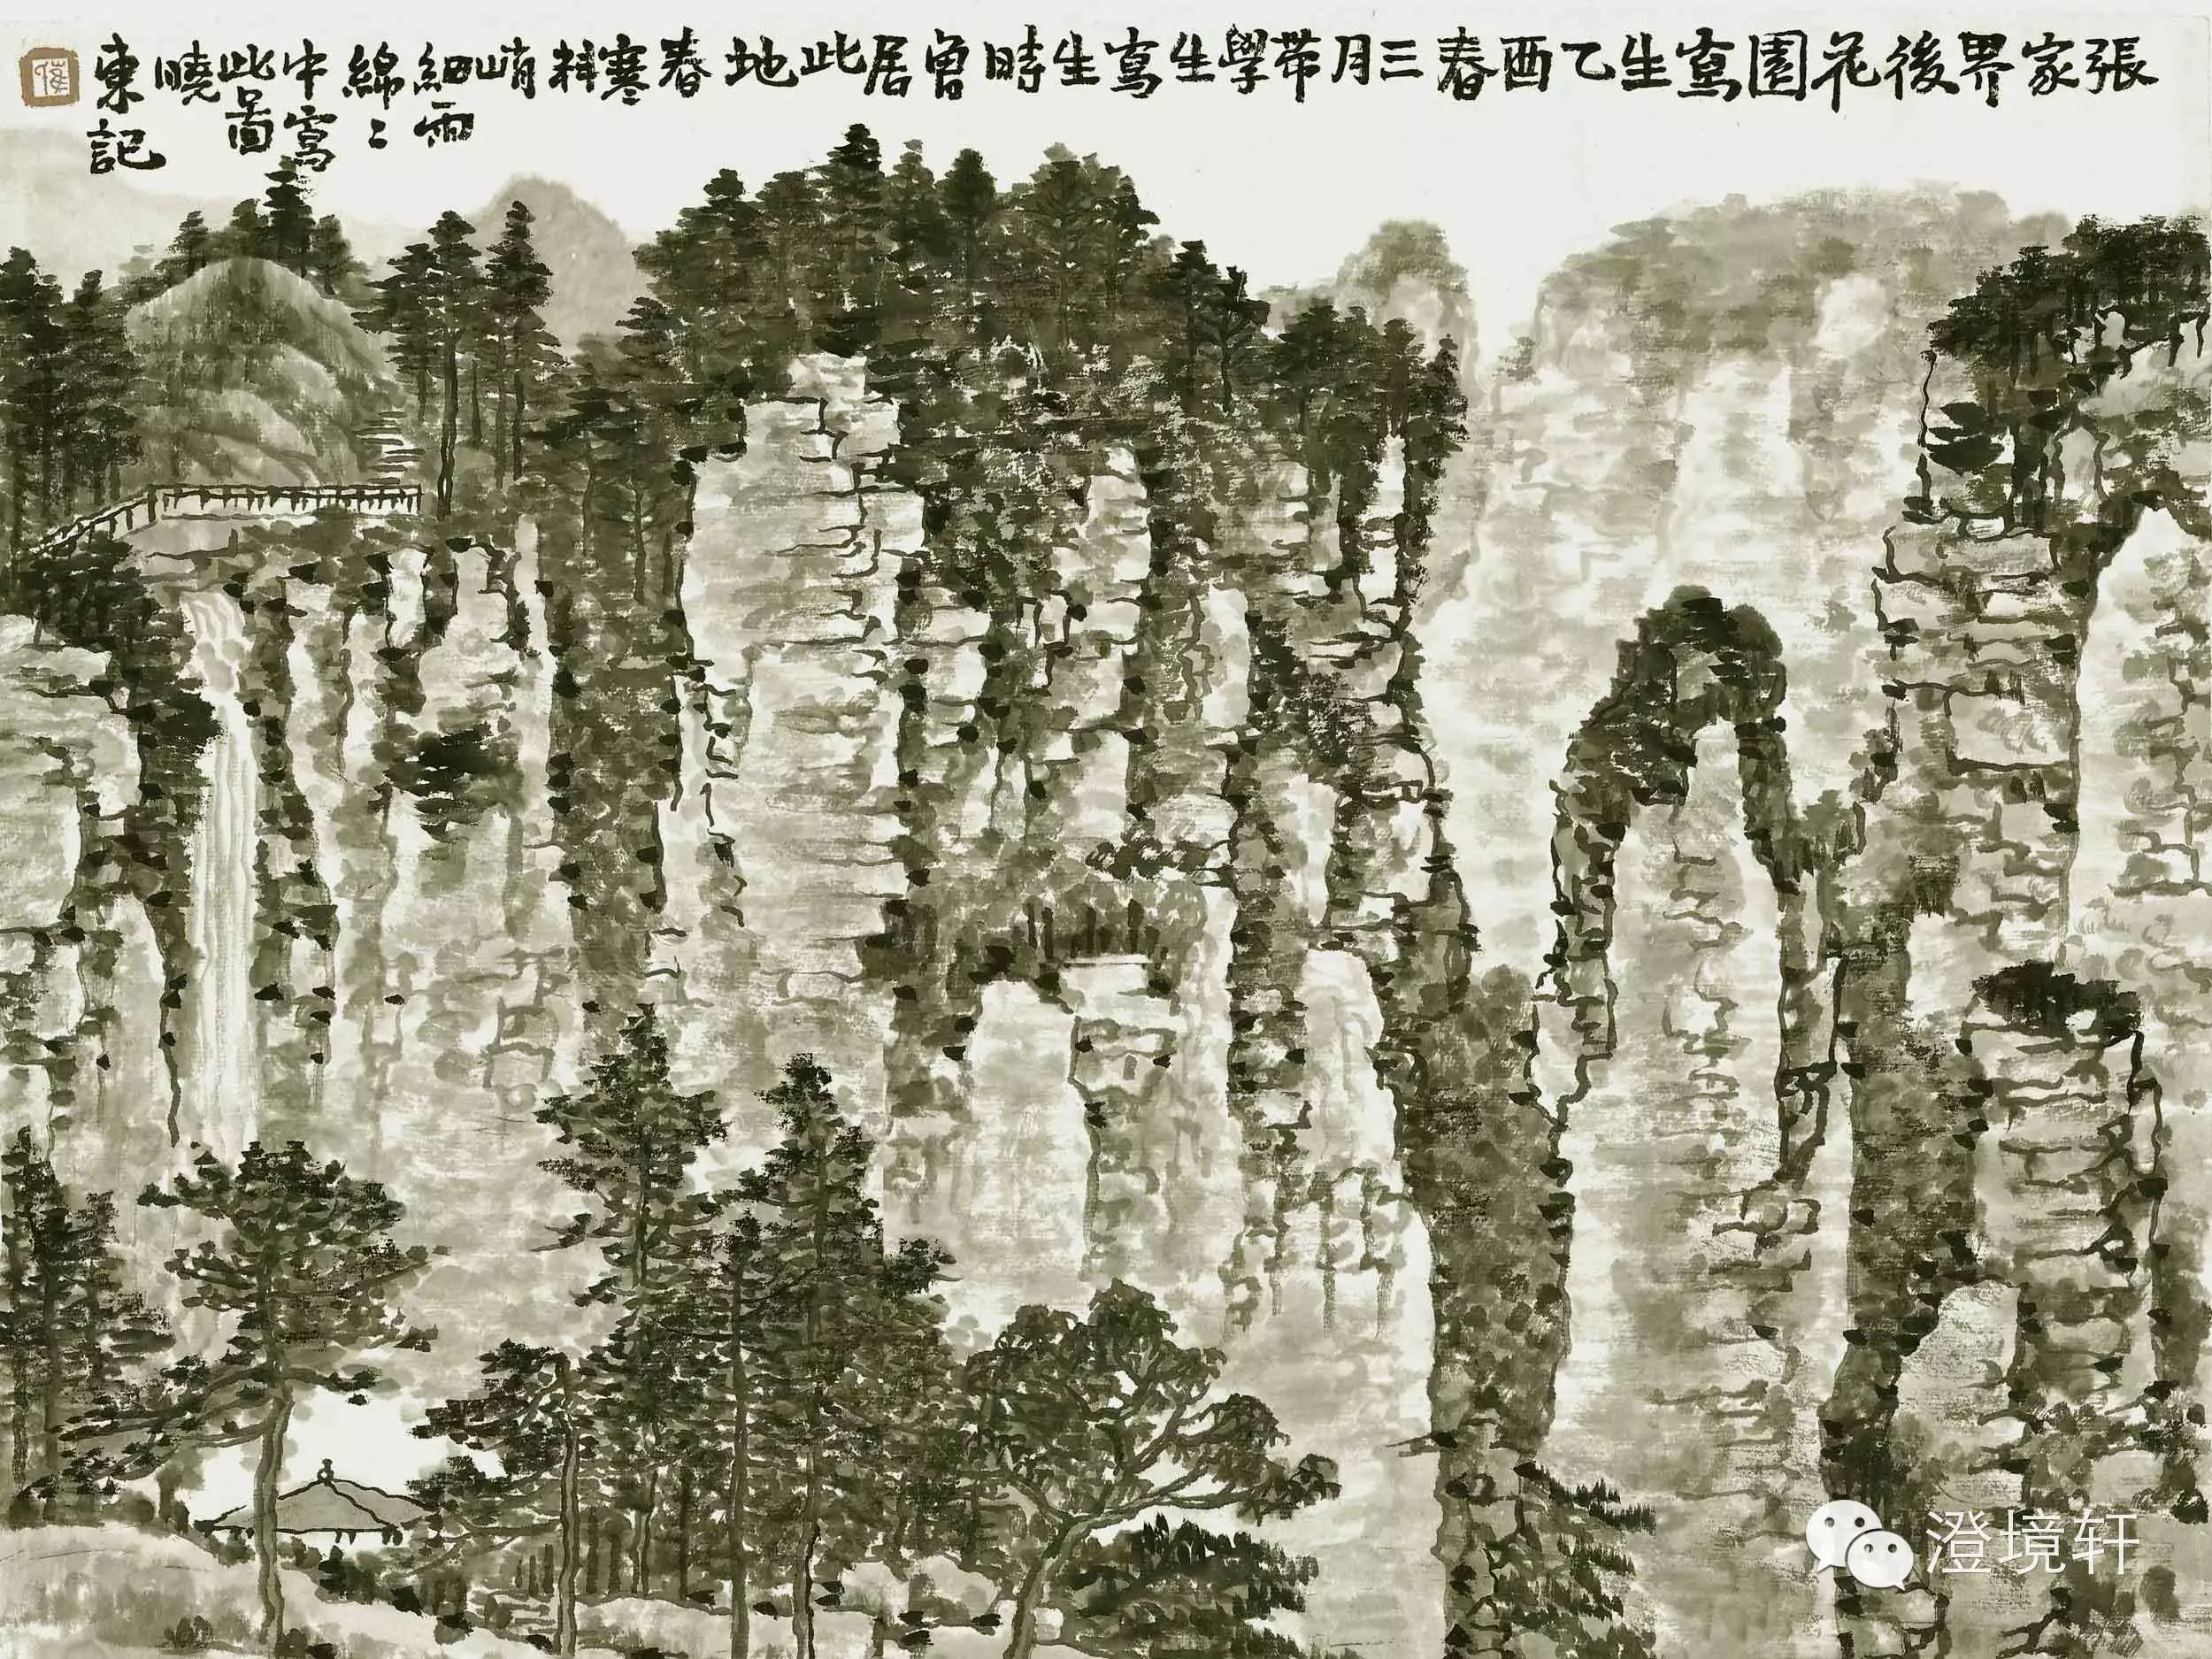 張家界後花園寫生乙酉春三月帶學生寫生時曾居此地春寒料峭
細雨
綿〻
中寫
此圖
曉
東記
澄境轩